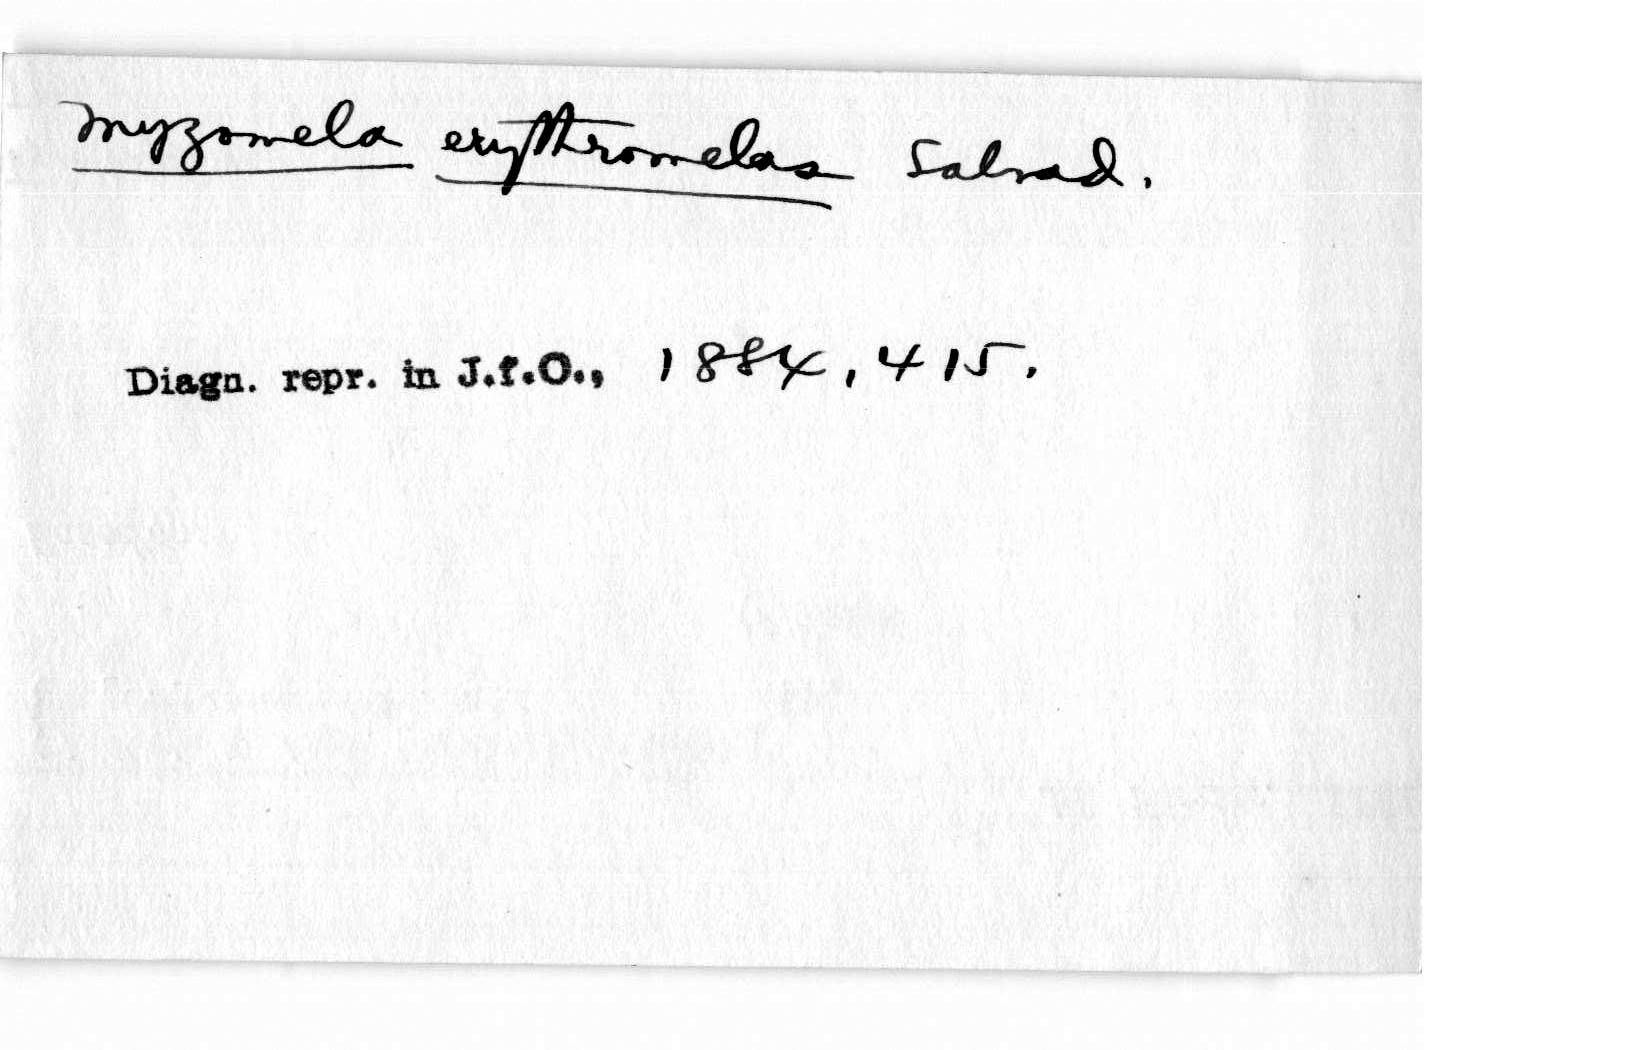 Myzomela erythromelas Salvad.
Diagn. repr. in J.f.O., 1884, 415.